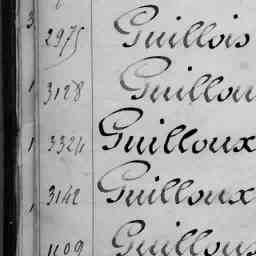 2975 Guillois
3128 Guillou
3324 Guilloux
3142 Guilloux
1109 Guilloux